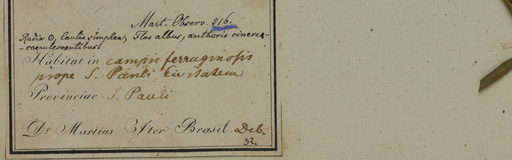 Mart. Observ. 816.
Radix ☉, Caulis simplex, Flos albus, antheris cinereo-
coerulescentibus
Habitat in campis ferruginosis
prope S. Pauli Civitatem
Provinciae S. Pauli
Dr Martius Iter Brasil Deb.
32.